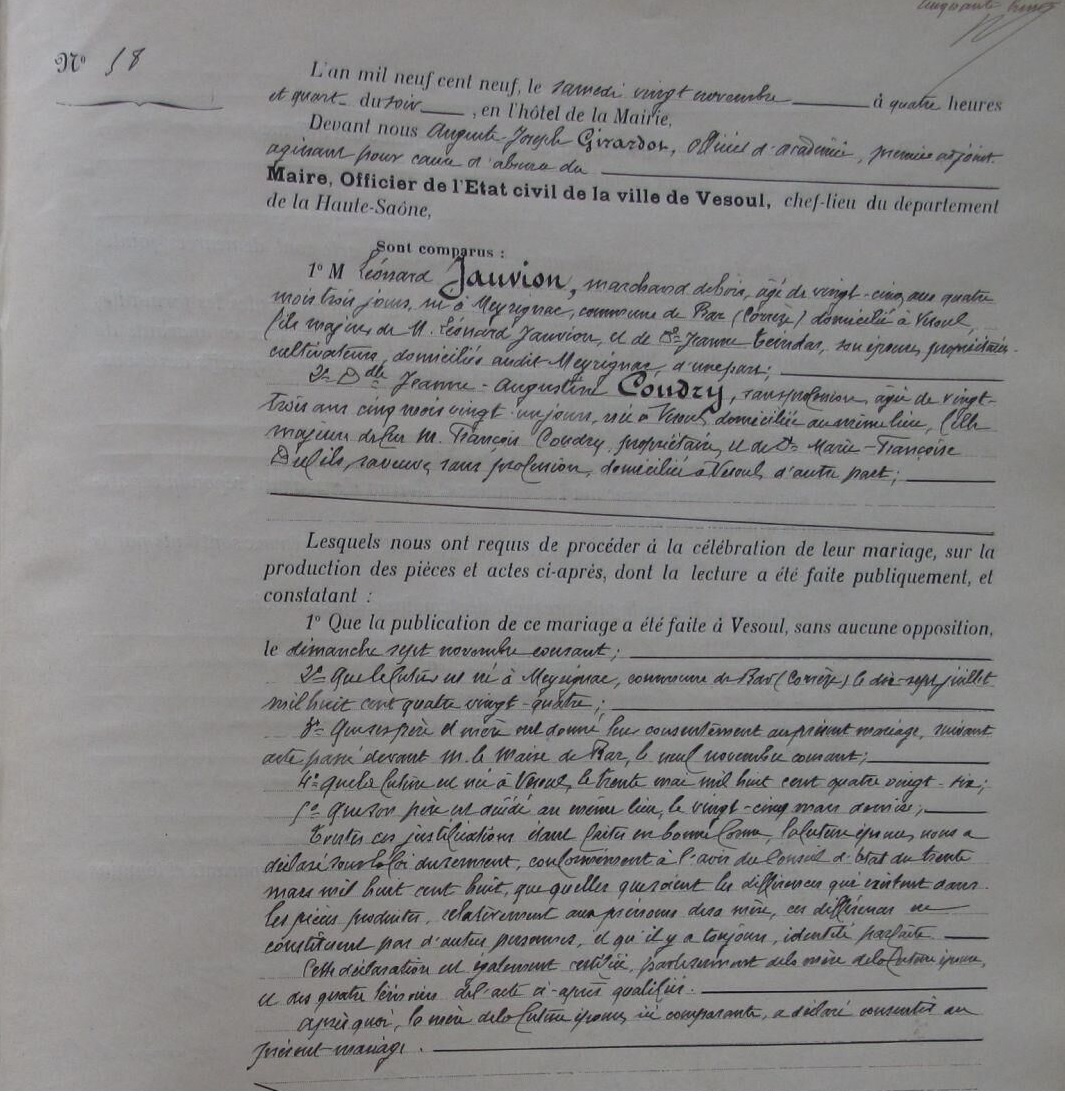 cinquante
N° 58
L'an mil neuf cent neuf, le samedi vingt novembre à quatre heures
et quart du soir, en l'hôtel de la Mairie,
Devant nous Auguste-Joseph Girardot, officier d'académie, premier adjoint
agissant pour cause d'absence du
Maire, Officier de l'Etat civil de la ville de Vesoul, chef-lieu du département
de la Haute-Saône,
Sont comparus :
1° M Léonard Jauvion, marchand de bois, âgé de vingt-cinq ans quatre
mois trois jours, né à Meyrignac, commune de Bar (Corrèze) domicilié à Vesoul,
fils majeur de M. Léonard Jauvion, et de De Jeanne son épouse, propriétaires-
cultivateurs, domiciliés audit Meyrignac, d'une part ;
2° Dlle Jeanne-Augustine Coudry, sans profession, âgée de vingt-
trois ans cinq mois vingt-un jours, née à Vesoul, domiciliée au même lieu, fille
majeure de feu M. François Coudry, propriétaire, et de De Marie-Françoise
sa veuve, sans profession, domiciliée à Vesoul, d'autre part ;
Lesquels nous ont requis de procéder à la célébration de leur mariage, sur la
production des pièces et actes ci-après, dont la lecture a été faite publiquement, et
constatant :
1° Que la publication de ce mariage a été faite à Vesoul, sans aucune opposition,
le dimanche sept novembre courant ;
2° Que le futur est né à Meyrignac, commune de Bar (Corrèze) le dix-sept juillet
mil huit cent quatre vingt-quatre ;
3° Que ses père et mère ont donné leur consentement au présent mariage, suivant
acte passé devant M. le Maire de Bar, le neuf novembre courant ;
4° Que la future est née à Vesoul, le trente mai mil huit cent quatre vingt-six ;
5° Que son père est décédé au même lieu, le vingt-cinq mars dernier ;
Toutes ces justifications étant faites en bonne forme, la future épouse, nous a
déclaré sous la foi du serment, conformément à l'avis du Conseil d'Etat du trente
mars mil huit cent huit, que quelles que soient les différences qui existent dans
les pièces produites, relativement aux prénoms de sa mère, ces différences ne
constituent pas d'autres personnes, et qu'il y a toujours, identité parfaite
Cette déclaration est également certifiée, par le serment de la mère de la future épouse,
et des quatre témoins de l'acte ci-après qualifiés.
Après quoi, la mère de la future épouse, ici comparante, a déclaré consentir au
présent mariage.